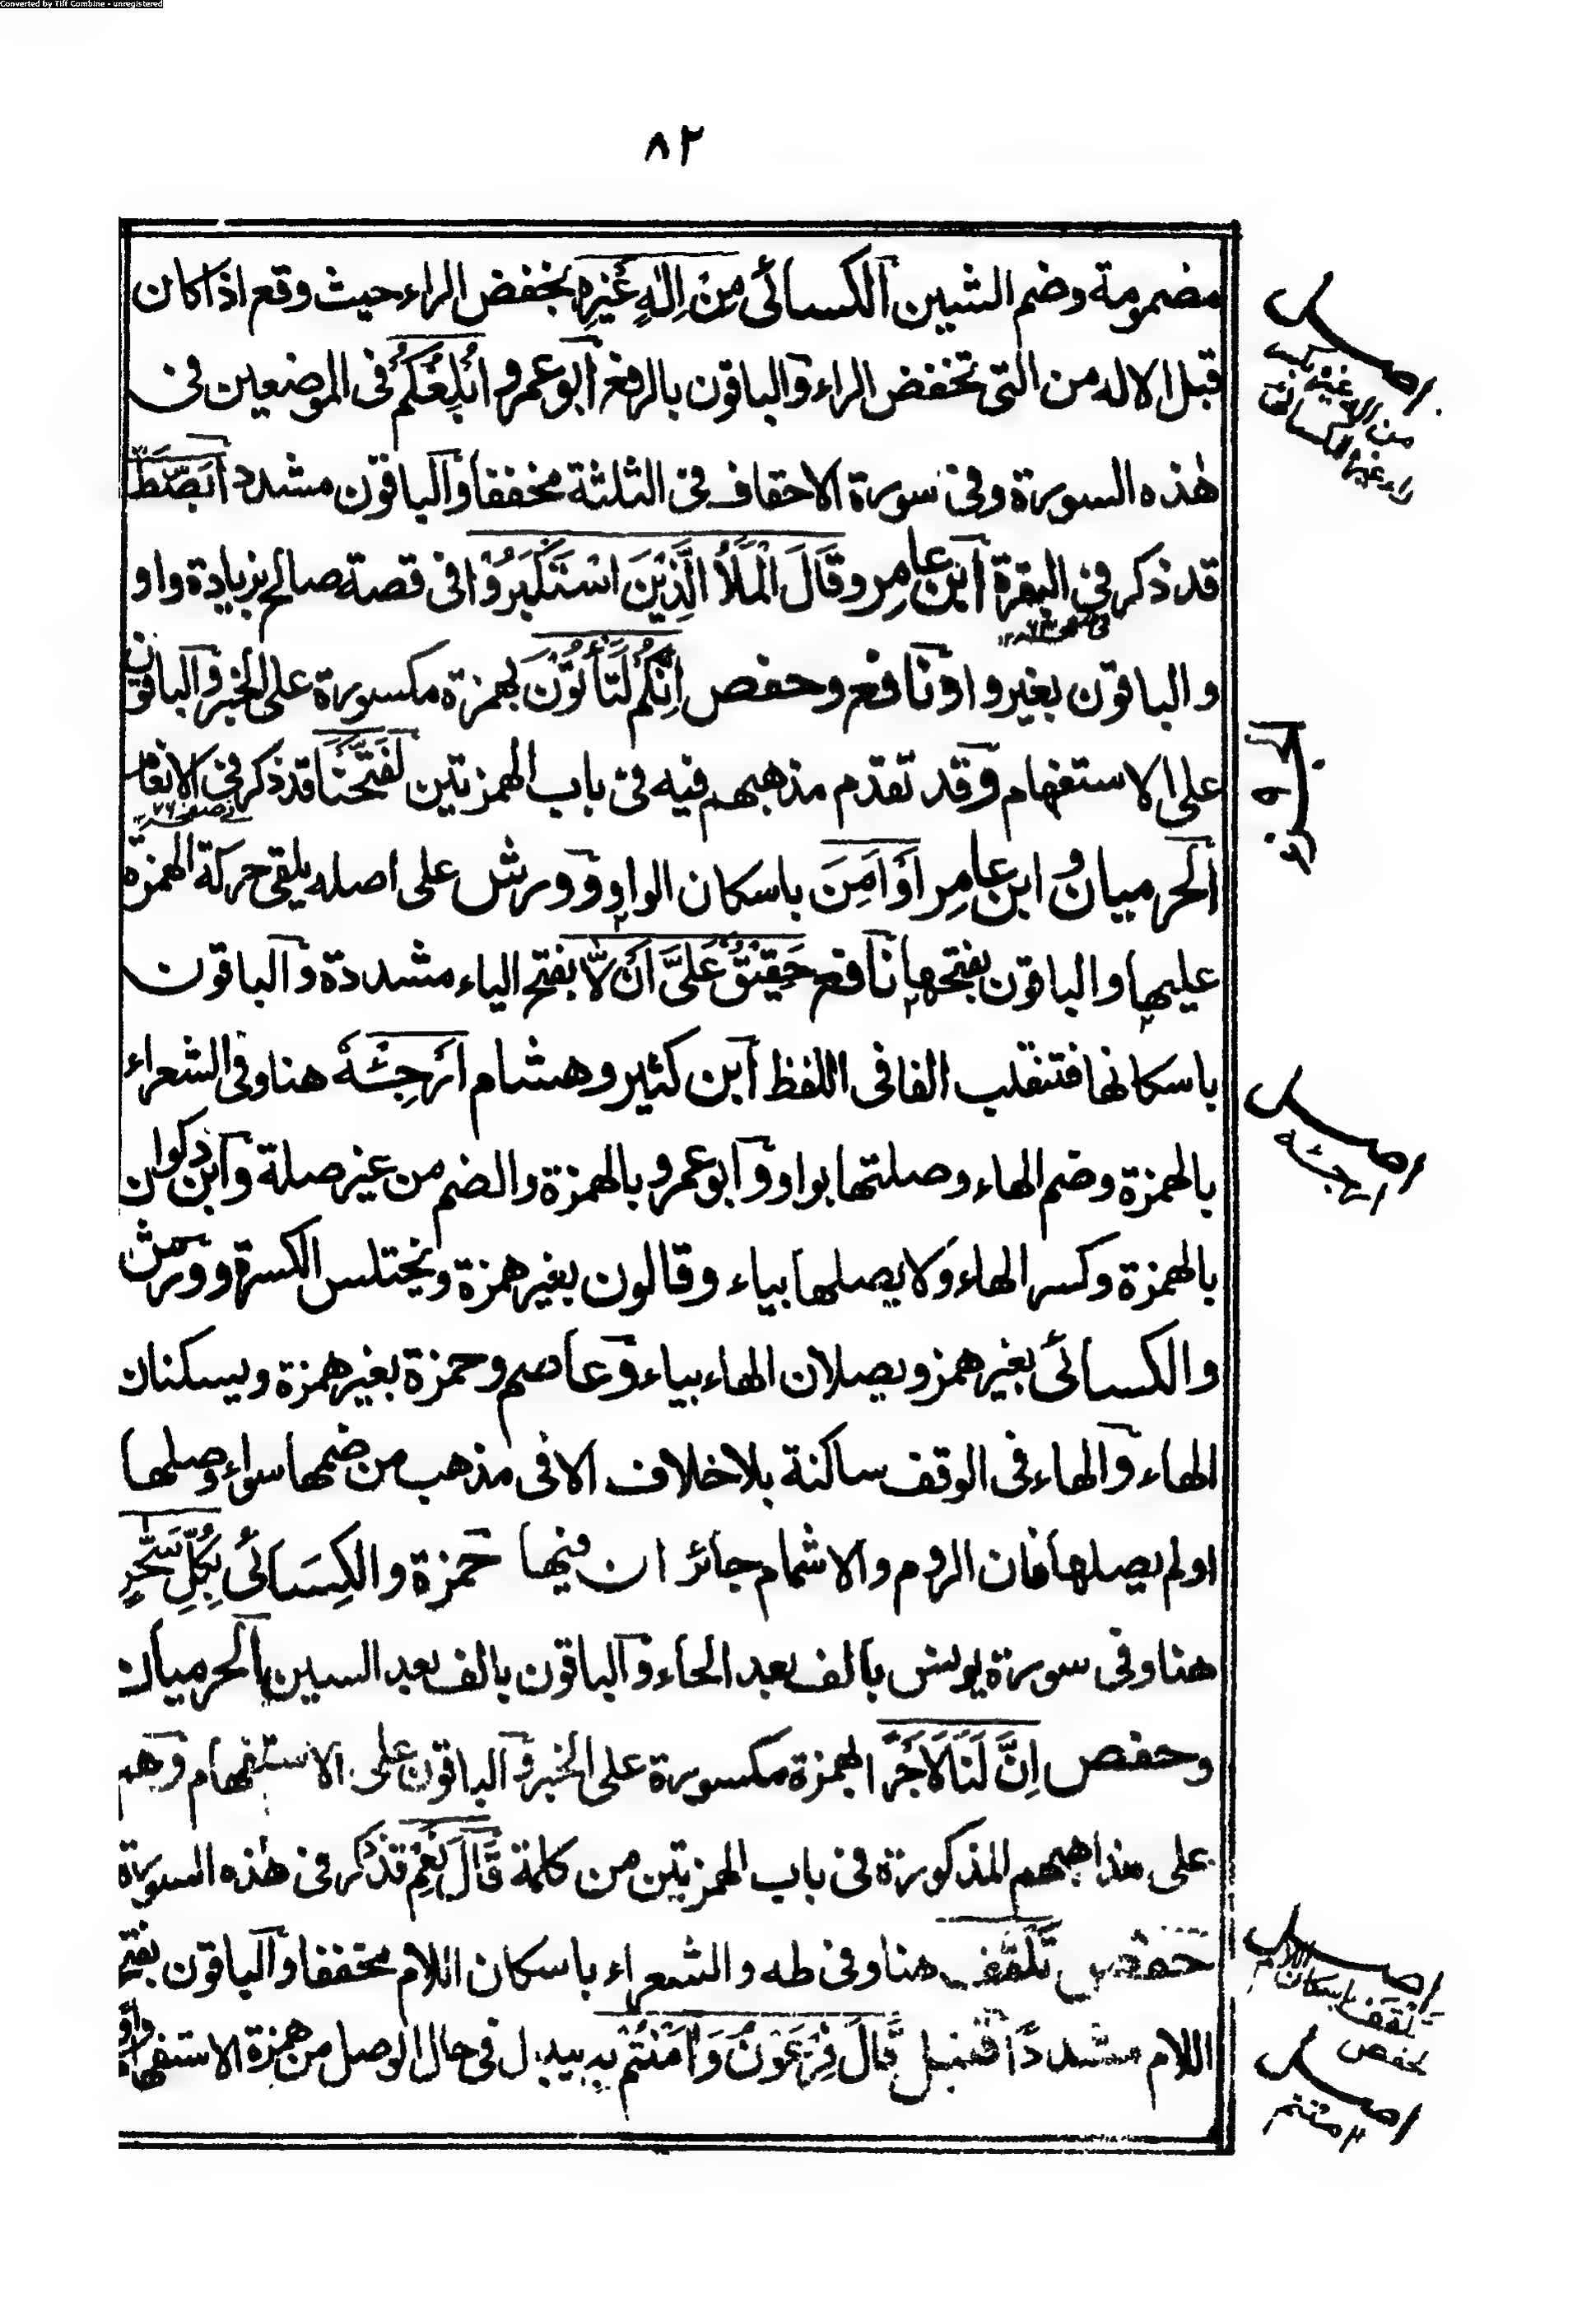 Converted by Tiff Combine - unregistered
٨٢
مضمومة وضم الشين الكسائى مِنْ اِلٰهٍ غَيْرِهٖ بخفض الراء حيث وقع اذا كان
قبل الاله من التى تخفض الراء والباقون بالرفع ابو عمرو اُبْلِغُكُمْ فى الموضعين فى
هٰذه السورة وفى سورة الاحقاف فى الثلثة مخففا والباقون مشددا بَصْطَةً
قد ذكر فى البقرة ابن عامِر وقَالَ الْمَلَأُ الَّذِيْنَ اسْتَكْبَرُوْا فى قصة صالح بزيادة واو
والباقون بغير واو نافع وحفص اِنَّكُمْ لَتَأْتُوْنَ بهمزة مكسورة على الخبر والباقون
على الاستفهام وقد تقدم مذهبهم فيه فى باب الهمزتين لَفَتَّحْنَا قد ذكر فى الانعام
الحرميان وابن عامِر اَوْ اَمِنَ باسكان الواو وورش على اصله يلقى حركة الهمزة
عليها والباقون بفتحها نافع حَقِيْقٌ عَلَىَّ اَنْ لَّا بفتح الياء مشددة والباقون
باسكانها فتنقلب الفا فى اللفظ ابن كثير وهشام اَرْجِئْهُ هنا وفى الشعراء
بالهمزة وضم الهاء وصلتها بواو وابو عمرو بالهمزة والضم من غير صلة وابن ذكوان
بالهمزة وكسر الهاء ولا يصلها بياء وقالون بغير همزة ويختلس الكسرة وورش
والكسائى بغير همز ويصلان الهاء بياء وعاصم وحمزة بغير همزة ويسكنان
الهاء والهاء فى الوقف ساكنة بلا خلاف الا فى مذهب من ضمها سواء وصلها
او لم يصلها فان الروم والاشمام جائزان فيها حمزة والكِسَائى بِكُلِّ سَحّٰرٍ
هنا وفى سورة يونس بالف بعد الحاء والباقون بالف بعد السين الحرميان
وحفص اِنَّ لَنَا لَاَجْرًا بهمزة مكسورة على الخبر والباقون على الاستفهام وهم
على مذاهبهم المذكورة فى باب الهمزتين من كلمة قَالَ نَعِمْ قد ذكر فى هٰذه السورة
حفص تَلْقَفُ هنا وفى طه والشعراء باسكان اللام مخففا والباقون بفتح
اللام مشددًا قنبل قَالَ فِرْعَوْنُ وَاٰمَنْتُمْ بِهٖ يبدل فى حال الوصل من همزة الاستفهام واوا
ارجئه
تلقف باسكان اللام
لحفص